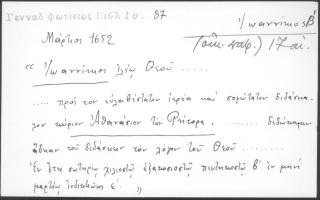 Γενναδ Φωτιειος Βιβλ Ισ. 87
Ἰωαννίκιος Β'
Μάρτιος 1652
(οἰκ. πατρ.) 17 αἰ.
“ Ἰωαννίκιος ἐλέῳ Θεοῦ .....
..... πρὸς τὸν εὐλαβέστατον ἱερέα καὶ σοφώτατον διδάσκα-
λον κύριον Ἀθανάσιον τὸν Ῥήτορα, .......... διδώκαμεν
ἄδειαν τοῦ διδάσκειν τὸν λόγον τοῦ Θεοῦ .....
Ἐν ἔτει σωτηρίῳ χιλιοστῷ ἑξακοσιοστῷ πεντηκοστῷ β' ἐν μηνὶ
μαρτίῳ ἰνδικτιῶνος ε' ”